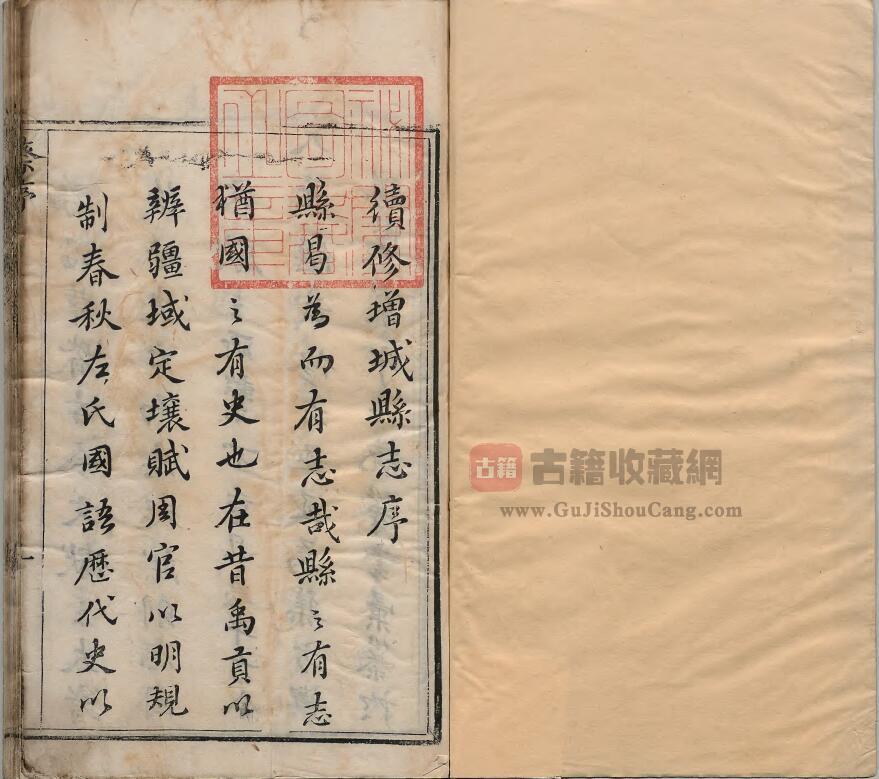 續修增城縣志序
縣曷為而有志哉縣之有志
猶國之有史也在昔禹貢以
辨疆域定壤賦周官以明規
制春秋左氏國語歷代史以
古籍
古籍收藏網
www.GuJiShouCang.com